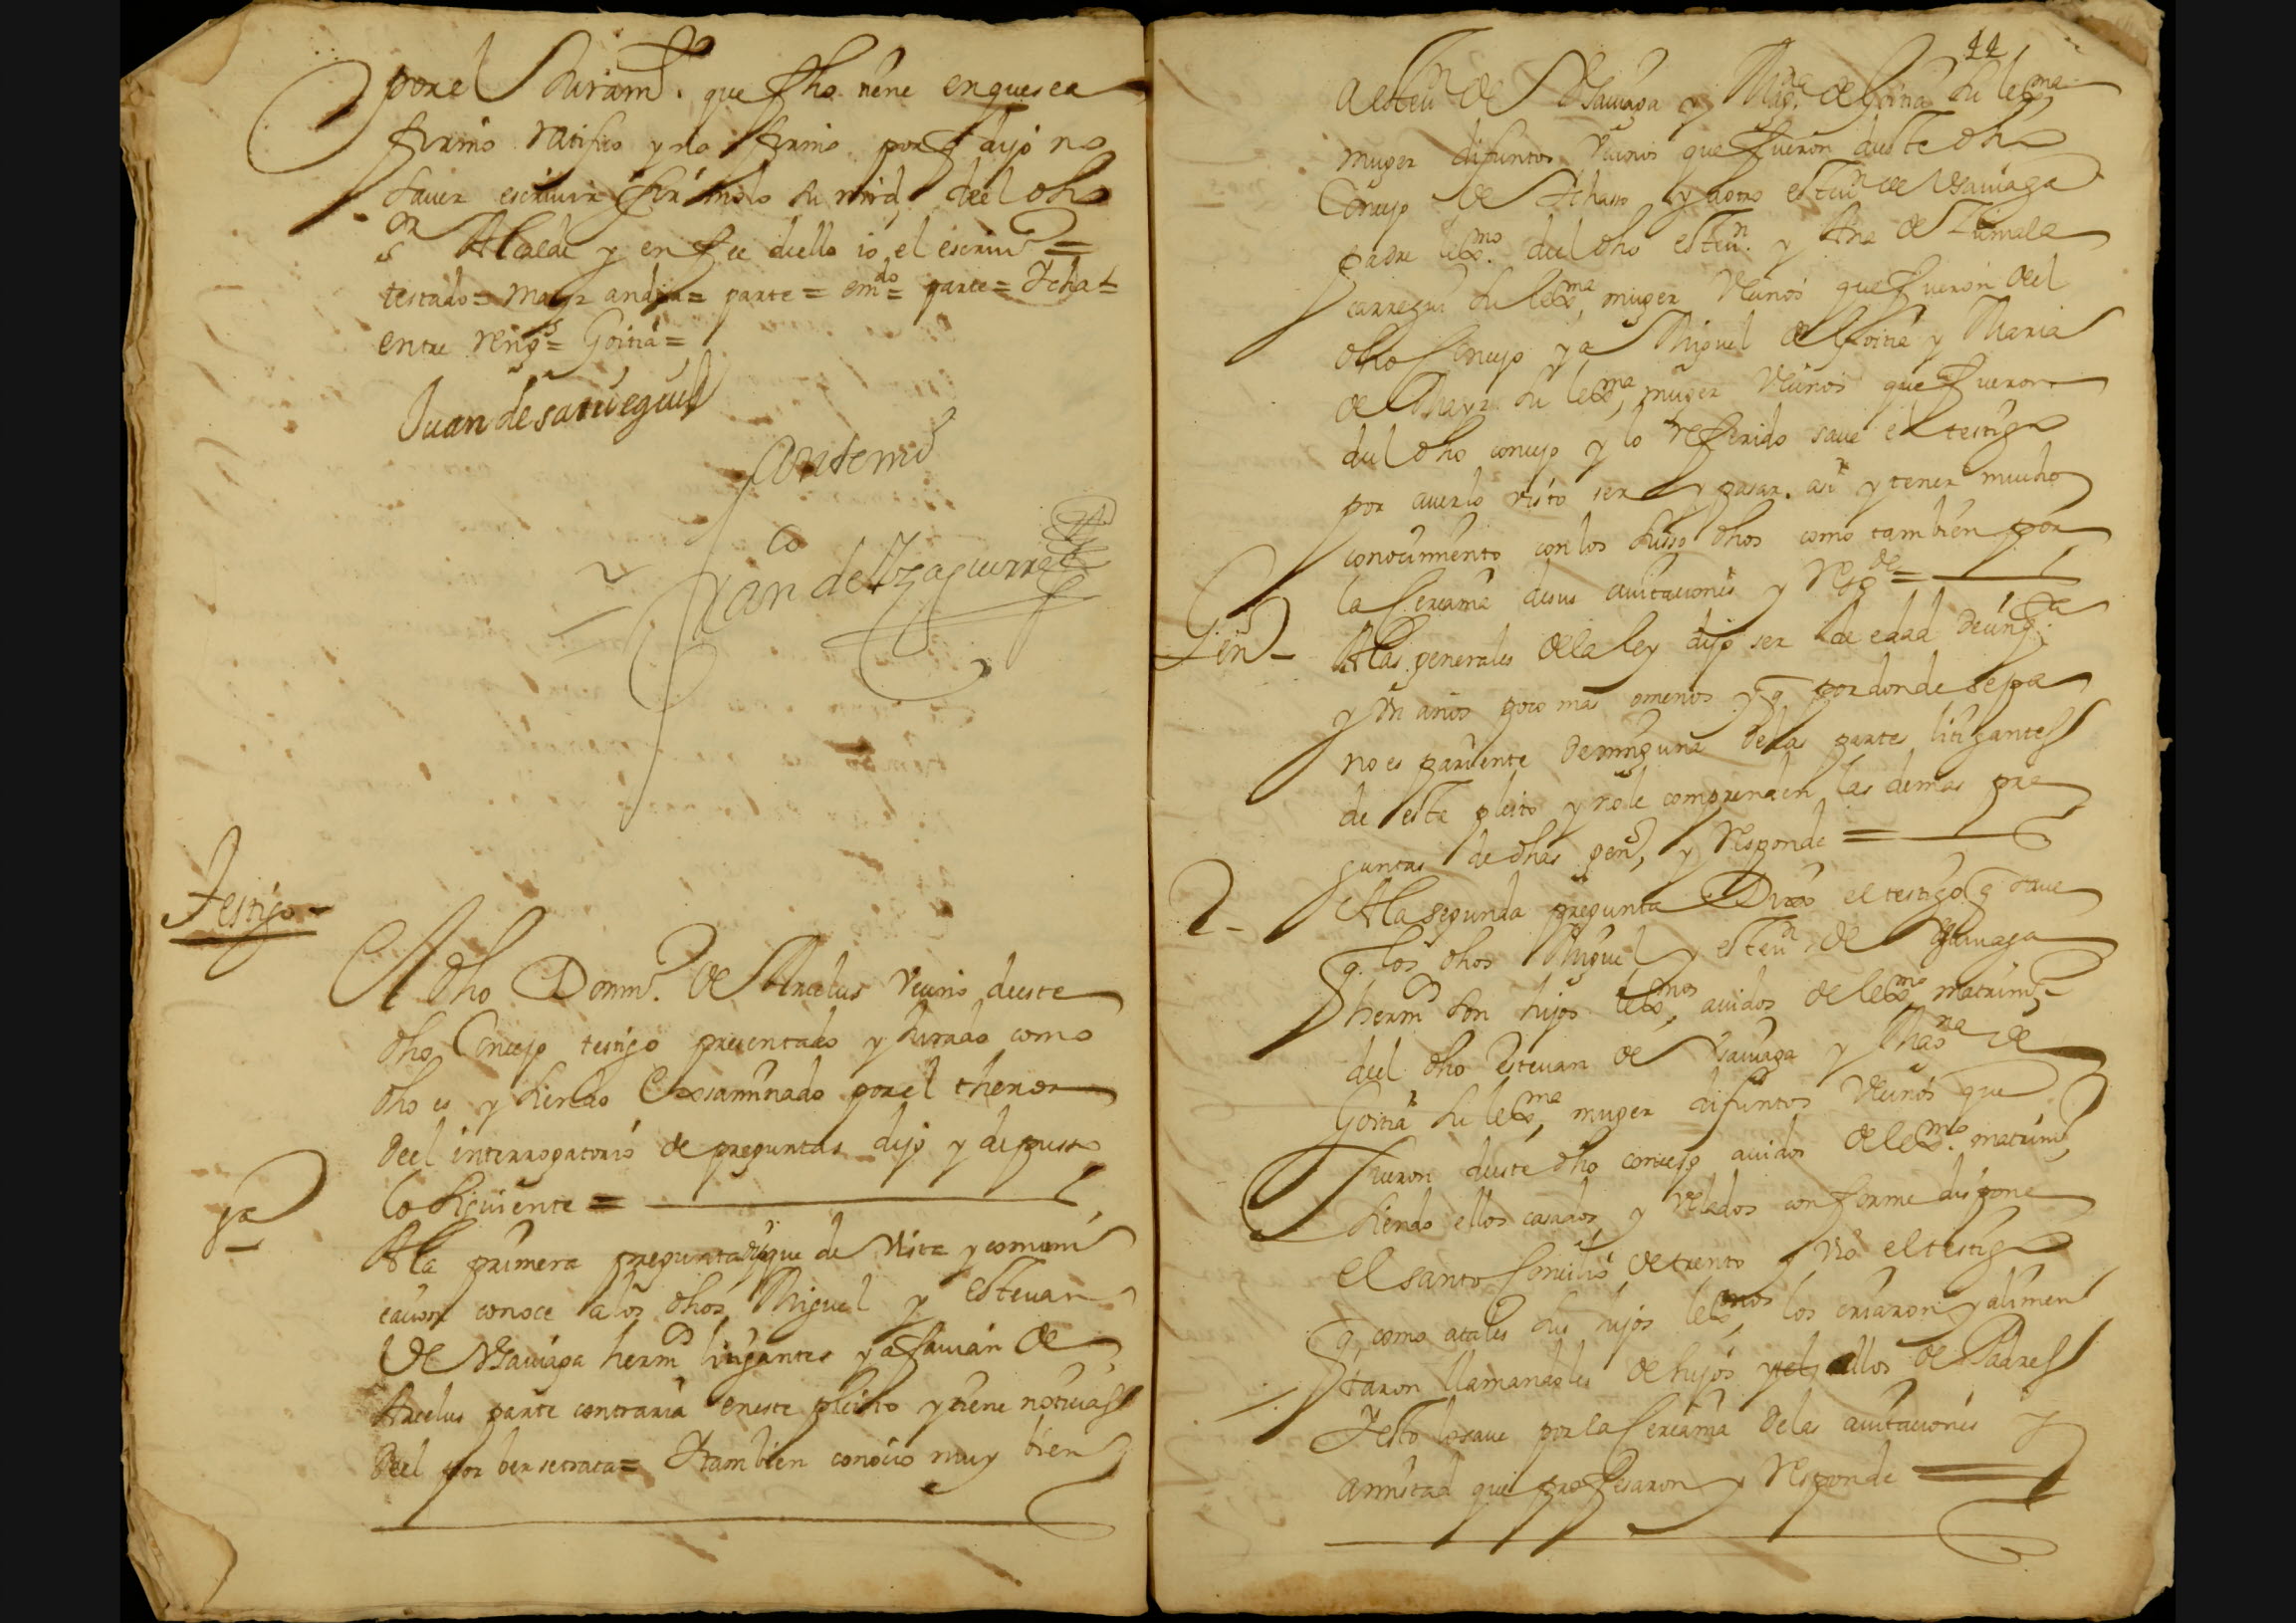 por el Juram.to que fho tiene en que se a
firmo Ratifico y no firmo por q dijo no
saver escrivir firmolo su mrd del dho
sr Alcalde y en fee dello io el escriu.no =
testado = = parte = em.do = parte =
entre Reng.s = Goitia =
Juan de
Ante mi
Juan de Yzaguirre
Testigo –
El dho Dom.o de Arcelus Veçino deeste
dho Conçejo testigo presentado y Jurado como
dho es y siendo Exsaminado por el thenor
deel interrogatorio de preguntas dijo y depusso
lo siguiente =
1a
A la primera pregunta dijo que de Vista y comuni
caçion conoce a los dhos Miguel y Estevan
de Vsauiaga herm.os litigantes y a fauian de
Arcelus parte contraria en este pleito y tiene notiçias
deel por ber se trata = I tambien conoçio muy bien
44
a esteu.n de Vsauiaga y de Goitia su lex.ma
muger difuntos Veçinos que fueron deeste dho
Conçejo de y a otro esteu.n de Vsauiaga
padre lex.mo deel dho esteu.n y Ana de
su lex.ma muger Veçinos que fueron deel
dho Conçejo y a Miguel de Goitia y Maria
de su lex.ma muger Veçinos que fueron
deel dho conçejo y lo Referido saue el testigo
por auerlo visto ser y pasar asi y tener mucho
conoçimiento con los susso dhos como tambien por
la sercania de sus auitaçiones y Resp.de =
Gen.s –
A las generales de la ley dijo ser de edad de çinq.ta
y un años poco mas o menos y q por donde sepa
no es pariente de ninguna de las partes litigantes
de este pleito y no le comprenden las demas pre
guntas de dhas gen.s y Responde =
2 –
A la segunda pregunta Dixo el testigo q saue
q los dhos Miguel y esteu.n de Vsauiaga
herm.os son hijos lex.mos auidos de lex.mo matrim.o
deel dho Estevan de Vsauiaga y de
Goitia su lex.ma muger difuntos Veçinos que
fueron deeste dho conçejo auidos de lex.mo matrim.o
siendo ellos casados y Velados conforme dispone
el santo Conçilio de trento y Vio el testigo
q como a tales sus hijos lex.mos los criaron y alimen
taron llamandoles de hijos y ellos de Padres
I esto lo saue por la sercania de las auitaçiones
amistad que profesaron y Responde =